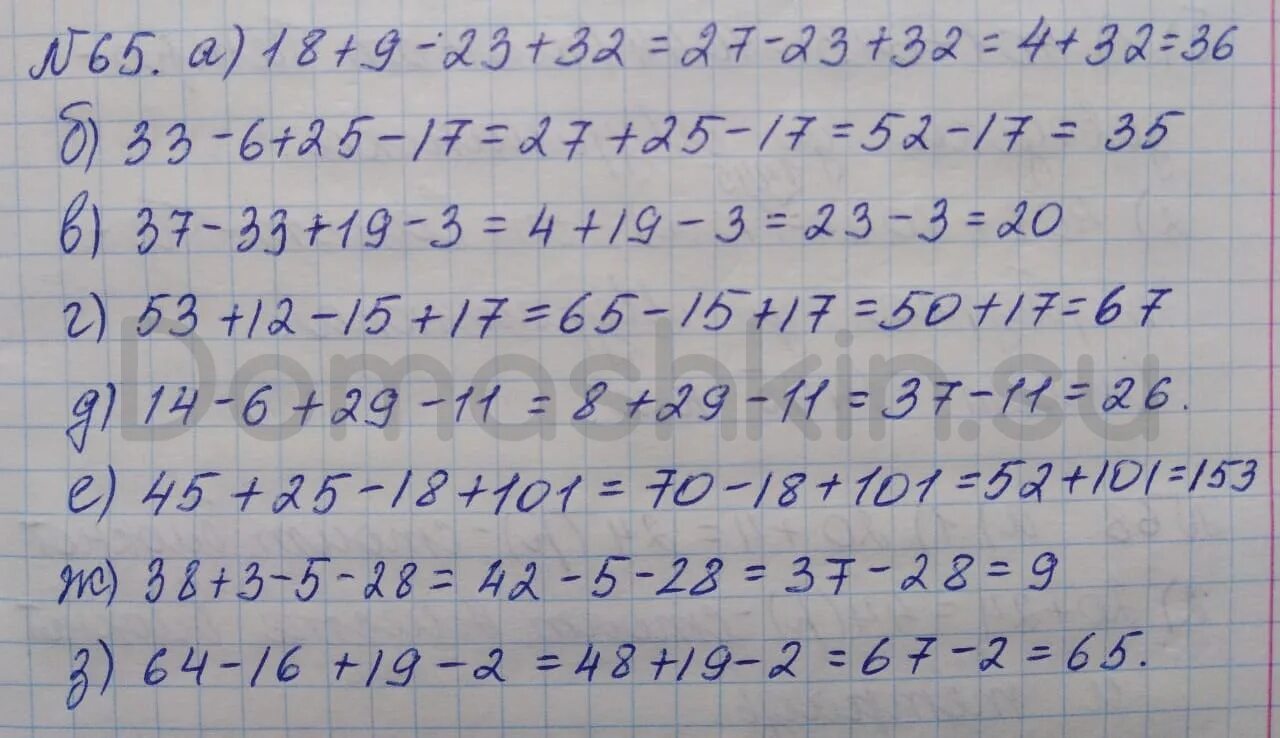 №65. а) 18+9-23+32=27-23+32=4+32=36
б) 33-6+25-17=27+25-17=52-17=35
в) 37-33+19-3=4+19-3=23-3=20
г) 53+12-15+17=65-15+17=50+17=67
Domashkin.su
д) 14-6+29-11=8+29-11=37-11=26.
е) 45+25-18+101=70-18+101=52+101=153
ж) 38+3-5-28=42-5-28=37-28=9
з) 64-16+19-2=48+19-2=67-2=65.